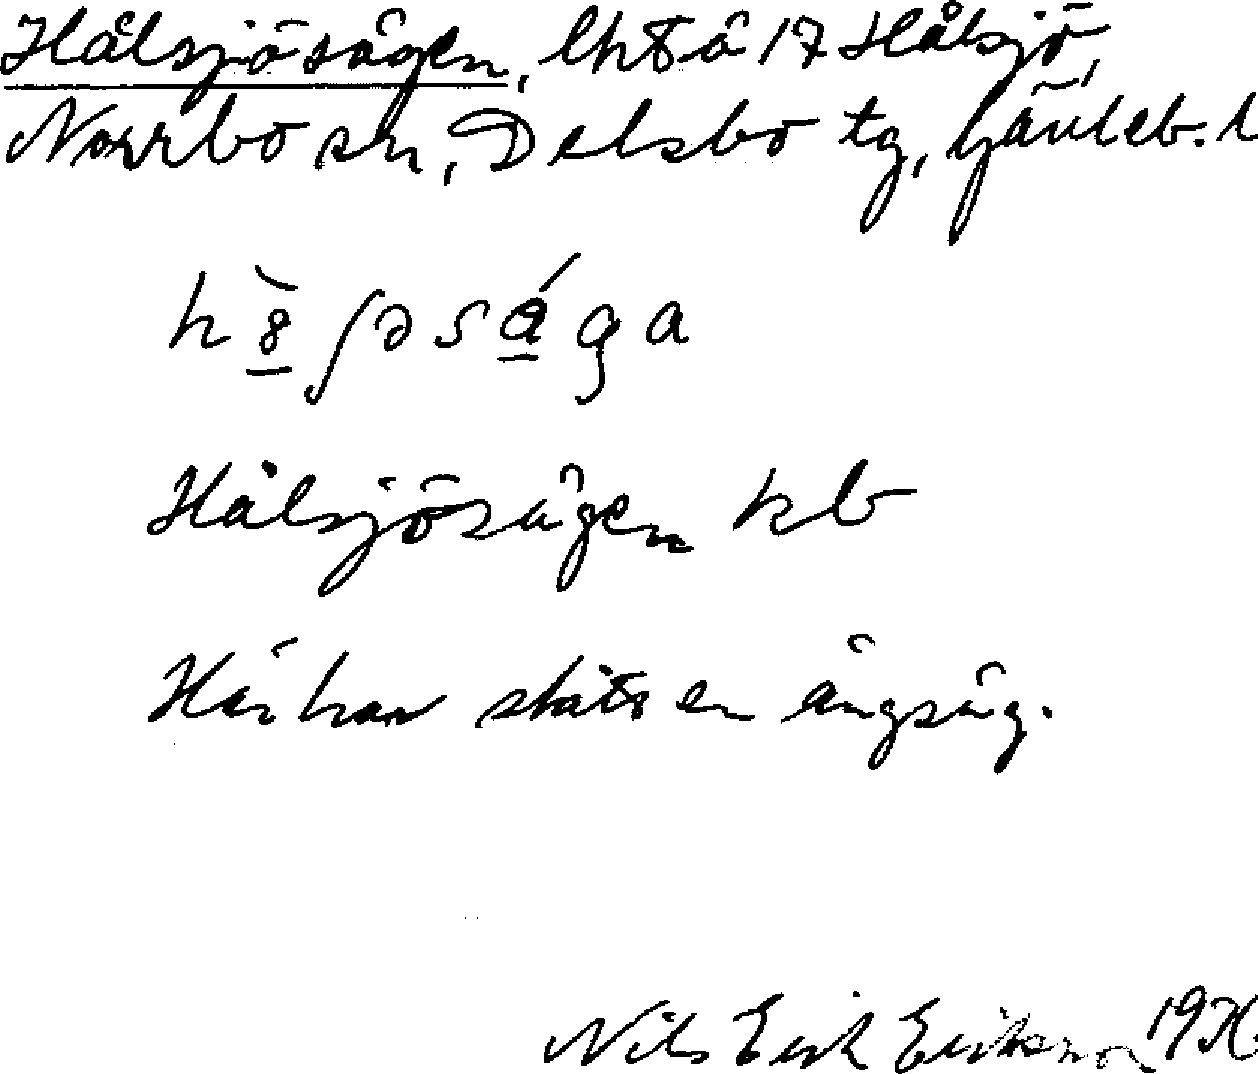 Hålsjösågen, lht 8 å 17 Hålsjö,
Norrbo sn, Delsbo tg, Gävleb. l
Hålsjösågen kb
Här har stått en ångsåg.
Nils Erik Eriksson 19